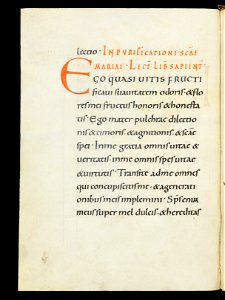 lectio · IN PURIFICATIONI SCAE
MARIAE · LECT LIB SAPIENT
EGO QUASI UITIS FRUCTI
ficaui suauitatem odoris · & flo
res mei fructus honoris & honesta
tis · Ego mater pulchrae dilectio
nis & timoris · & agnitionis · & scae
spei · In me gratia omnis uitae &
ueritatis · in me omnis spes uitae
& uirtutis · Transite ad me omnes
qui concupiscitis me · & a generati
onibus meis implemini · Sps enim
meus super mel dulcis · & hereditas